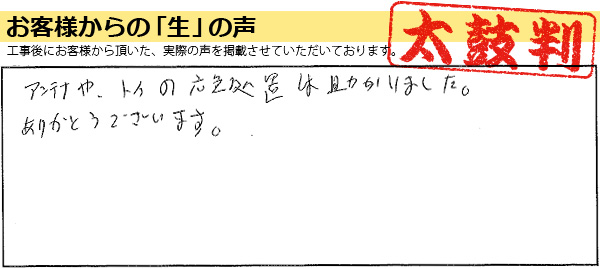 お客様からの「生」の声
工事後にお客様から頂いた、実際の声を掲載させていただいております。
太鼓判
アンテナや、トイの応急処置は助かりました。
ありがとうございます。